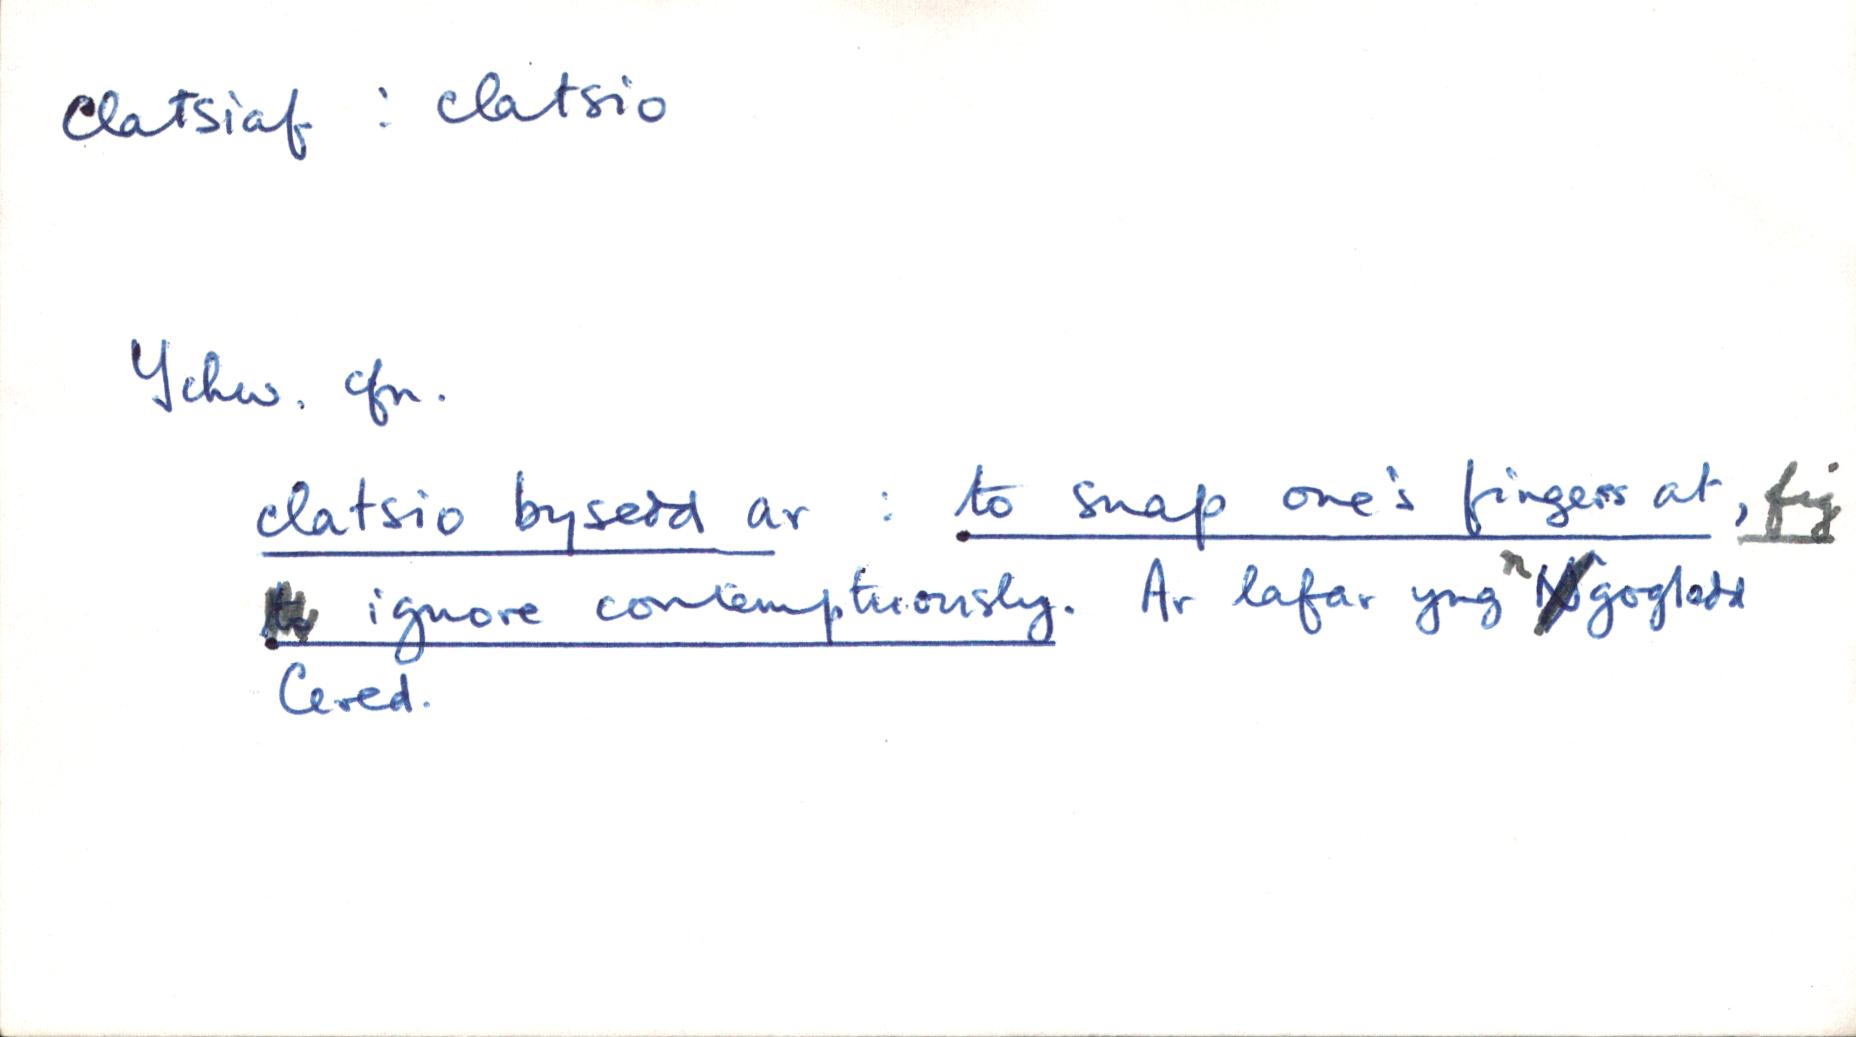 clatsiaf : clatsio
Ychw. cfn.
clatsio bysedd ar : to snap one's fingers at, fig
ignore contemptuously. Ar lafar yng ngogledd
Cered.